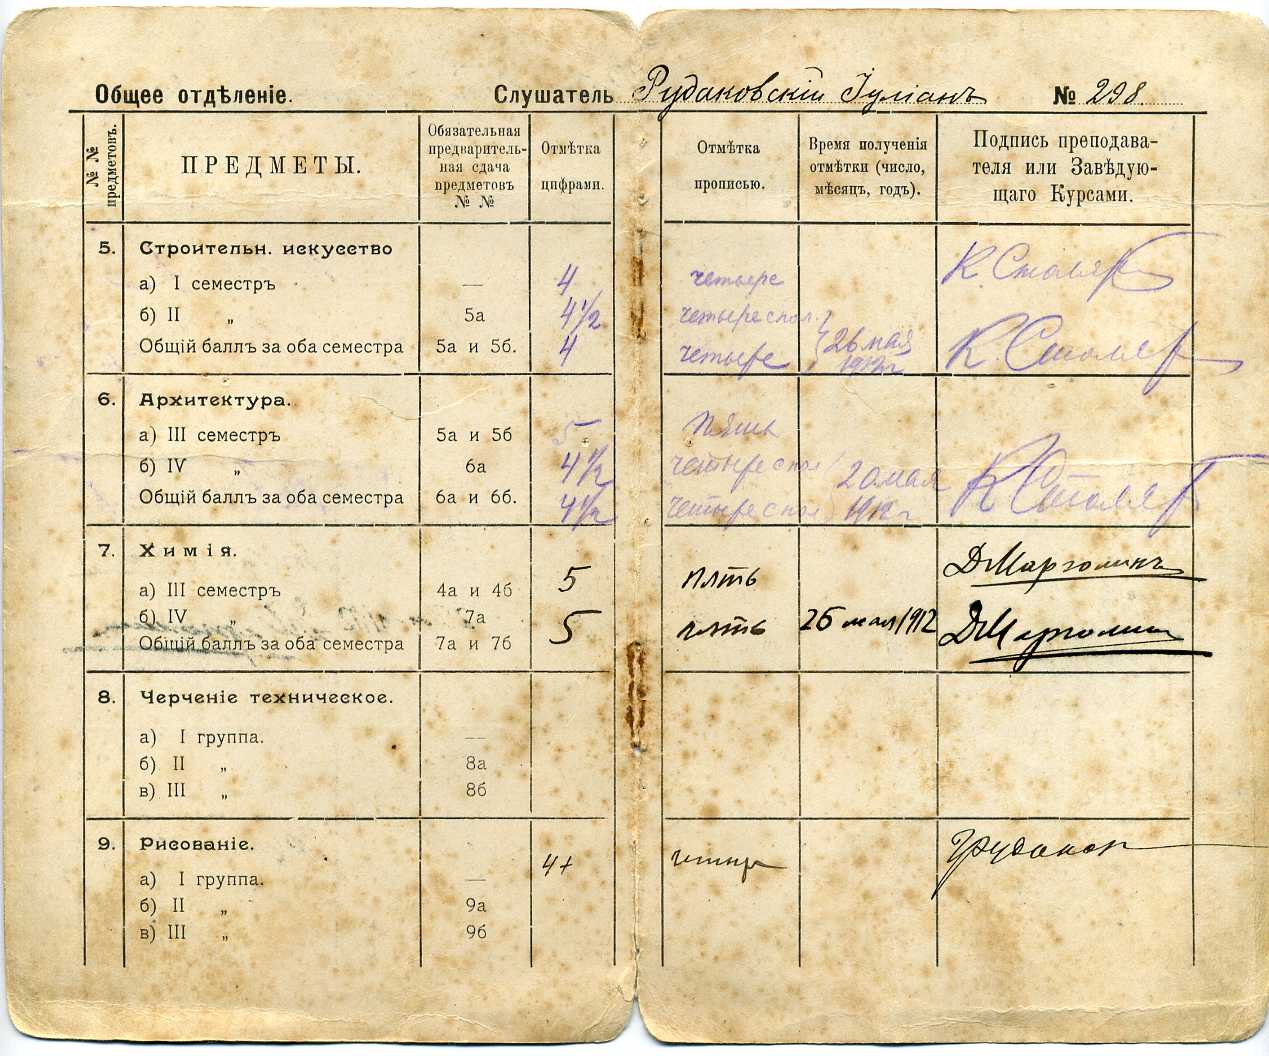 Общее отдѣленіе. Слушатель Рудаковскій Іуліанъ № 298.
№ № предметовъ. ПРЕДМЕТЫ. Обязательная предваритель- ная сдача предметовъ № № Отмѣтка цифрами. Отмѣтка прописью. Время полученія отмѣтки (число, мѣсяцъ, годъ). Подпись преподава- теля или Завѣдую- щаго Курсами.
5. Строительн. искусство
а) I семестръ — 4 четыре К. Столяр
б) II „ 5а 4 1/2 четыре с пол.
Общій баллъ за оба семестра 5а и 5б. 4 четыре 26 мая 1912 г К. Столяр
6. Архитектура.
а) III семестръ 5а и 5б 5 пять
б) IV „ 6а 4 1/2 четыре с пол
Общій баллъ за оба семестра 6а и 6б. 4 1/2 четыре с пол 20 мая 1912 г К Столяр
7. Химія. ДМарголинъ
а) III семестръ 4а и 4б 5 пять
б) IV „ 7а
Общій баллъ за оба семестра 7а и 7б 5 пять 26 мая 1912 ДМарголин
8. Черченіе техническое.
а) I группа. —
б) II „ 8а
в) III „ 8б
9. Рисованіе. 4+ четыре
а) I группа. —
б) II „ 9а
в) III „ 9б